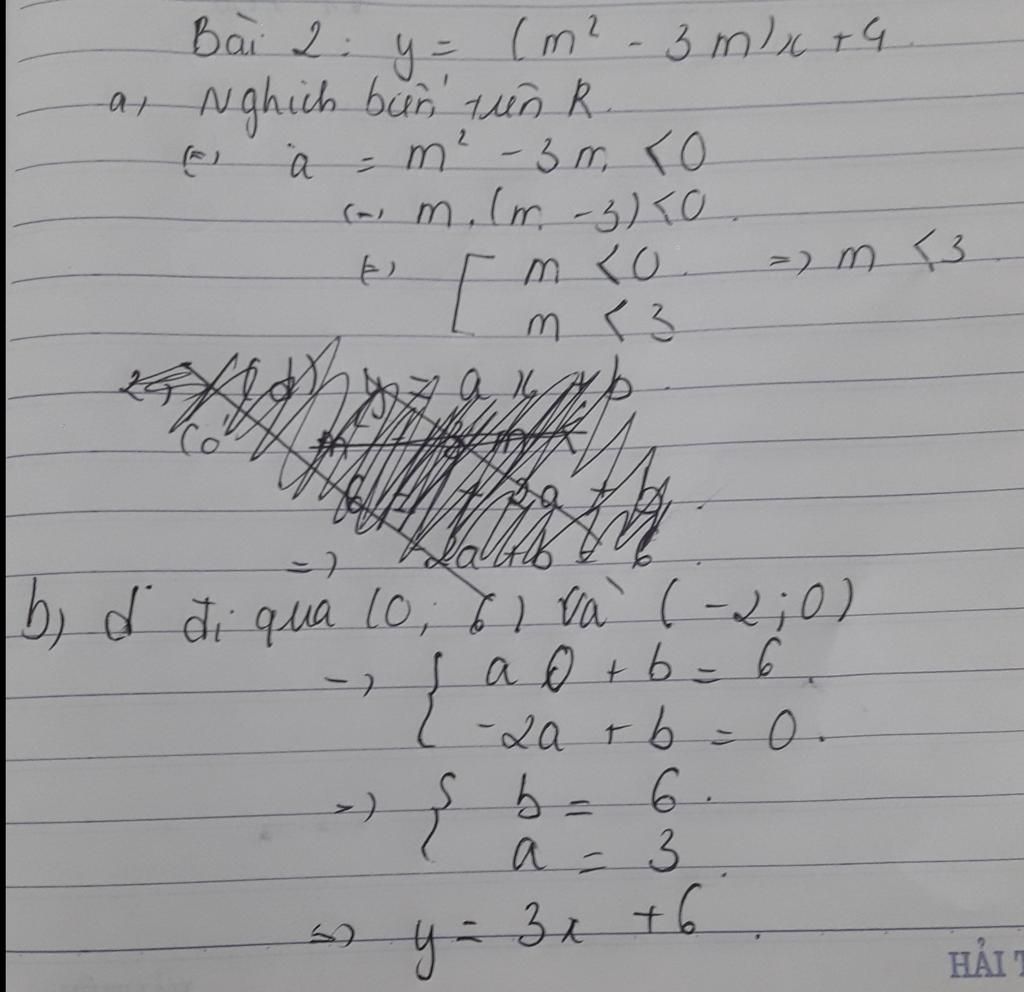 Bài 2: y = (m² - 3m)x + 4
a, Nghịch biến trên R.
(=) a = m² - 3m < 0
(=) m.(m - 3) < 0.
(=) [ m < 0. => m < 3
m < 3
(d) y = ax + b
=> 2a + b = 6
b) d đi qua (0; 6) và (-2; 0)
-> { a0 + b = 6.
-2a + b = 0.
=> { b = 6.
a = 3.
=> y = 3x + 6.
HẢI T